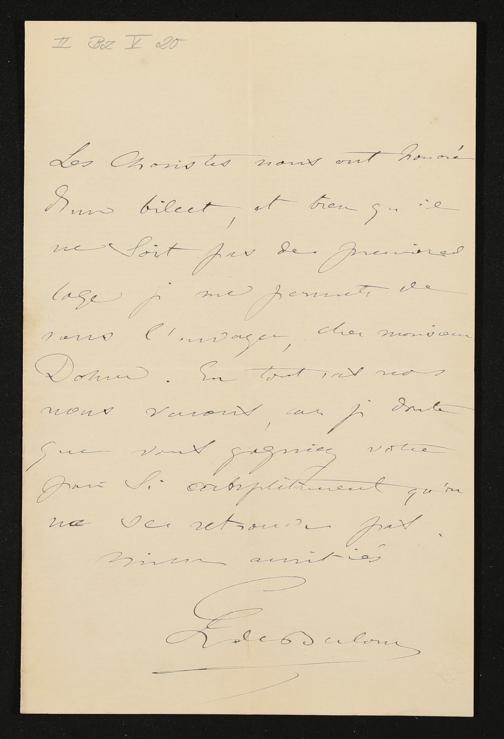 II BZ V 20
Les Choristes nous ont honoré
d'un billet, et bien qu'il
ne soit pas de première
loge je me permets de
vous l'envoyer, cher monsieur
Dohrn. En tout cas nous
nous verrons, car je doute
que vous gagniez votre
si complètement qu'on
ne se retrouve pas.
amitiés